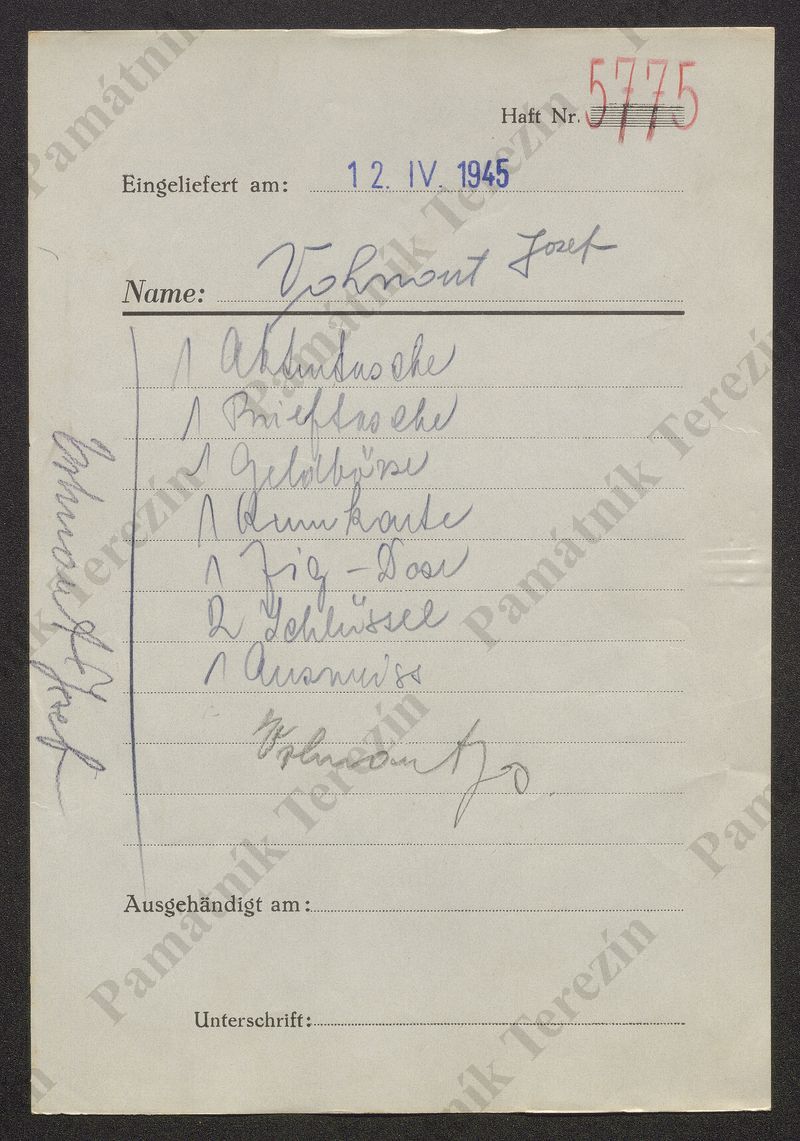 Haft Nr. 5775
Eingeliefert am: 12. IV. 1945
Name: Vohnout Josef
1 Aktentasche
1 Brieftasche
1 Geldbörse
1 Kennkarte
1 Zig-Dose
2 Schlüssel
1 Ausweiss
Vohnout Jo.
Vohnout Josef
Ausgehändigt am:
Unterschrift:
Památník Terezín